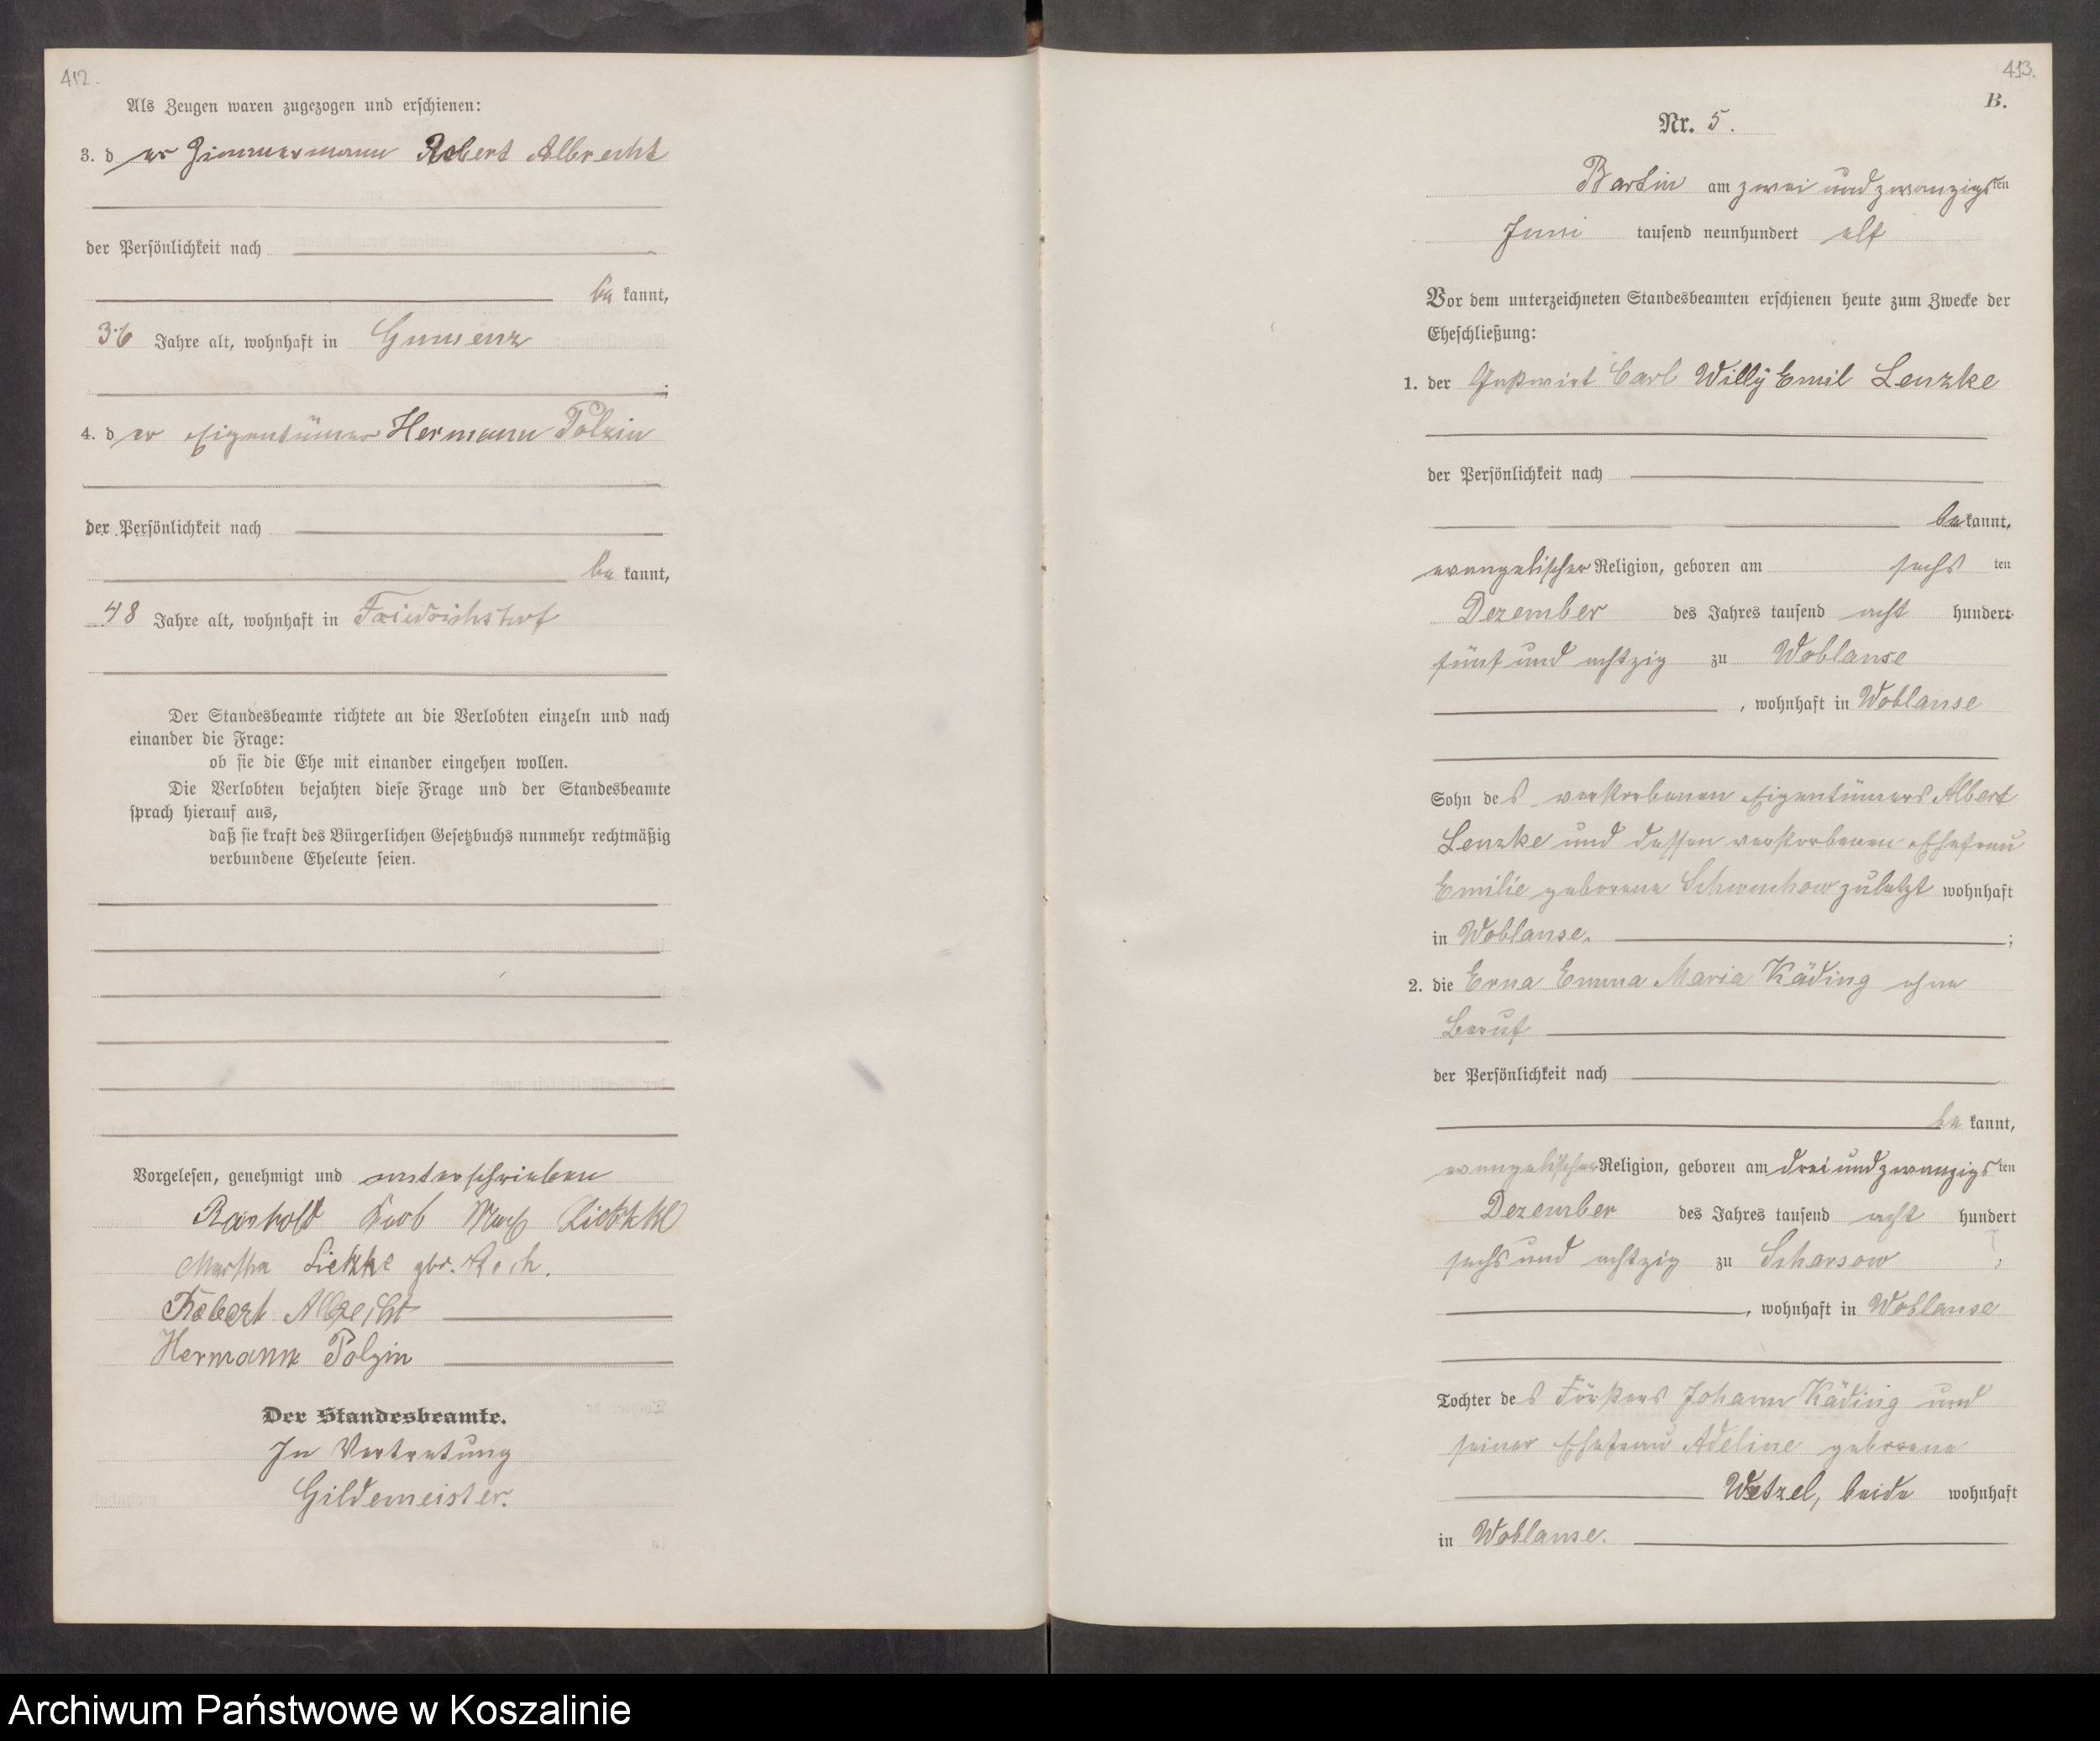 412.
Als Zeugen waren zugezogen und erschienen:
3. der Zimmermann Robert Albrecht
der Persönlichkeit nach
bekannt,
36 Jahre alt, wohnhaft in Gumenz
;
4. der Eigentümer Hermann Polzin
der Persönlichkeit nach
bekannt,
48 Jahre alt, wohnhaft in Friedrichshof
Der Standesbeamte richtete an die Verlobten einzeln und nach
einander die Frage:
ob sie die Ehe mit einander eingehen wollen.
Die Verlobten bejahten diese Frage und der Standesbeamte
sprach hierauf aus,
daß sie kraft des Bürgerlichen Gesetzbuchs nunmehr rechtmäßig
verbundene Eheleute seien.
Vorgelesen, genehmigt und unterschrieben
Martha gbr.
Robert Albrecht
Hermann Polzin
Der Standesbeamte.
In Vertretung
Gildemeister.
413.
B.
Nr. 5.
Bartin am zwei und zwanzigsten
Juni tausend neunhundert elf
Vor dem unterzeichneten Standesbeamten erschienen heute zum Zwecke der
Eheschließung:
1. der Gastwirt Carl Willy Emil Lenzke
der Persönlichkeit nach
bekannt,
evangelischer Religion, geboren am sechsten
Dezember des Jahres tausend acht hundert
fünf und achtzig zu Woblanse
, wohnhaft in Woblanse
Sohn des verstorbenen Eigentümers Albert
Lenzke und dessen verstorbenen Ehefrau
Emilie geborene Schwuchow zuletzt wohnhaft
in Woblanse. ;
2. die Erna Emma Maria Käding ohne
Beruf
der Persönlichkeit nach
bekannt,
evangelischer Religion, geboren am drei und zwanzigsten
Dezember des Jahres tausend acht hundert
sechs und achtzig zu Scharsow
, wohnhaft in Woblanse
Tochter des Försters Johann Käding und
seiner Ehefrau Adeline geborene
Wetzel, beide wohnhaft
in Woblanse.
Archiwum Państwowe w Koszalinie